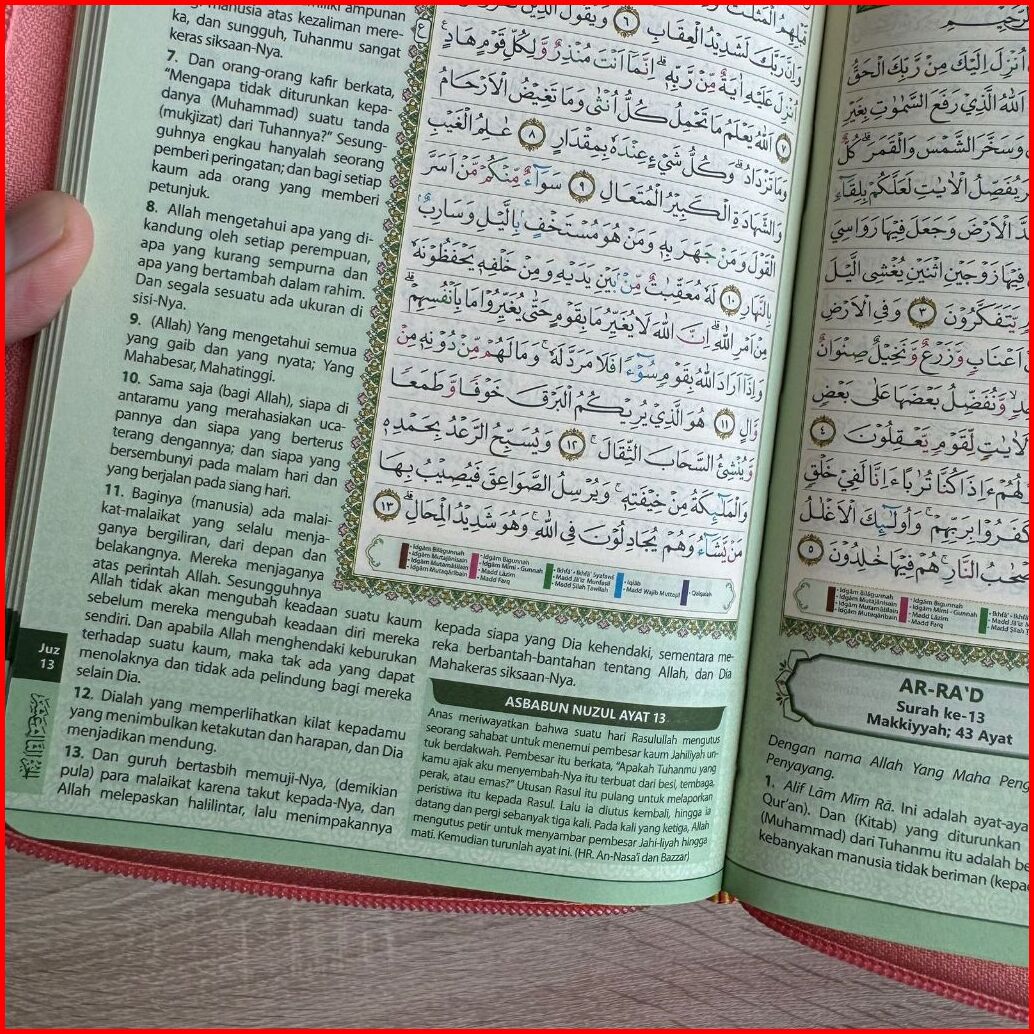 manusia atas kezaliman mere-
ka, dan sungguh, Tuhanmu sangat
keras siksaan-Nya.
7. Dan orang-orang kafir berkata,
"Mengapa tidak diturunkan kepa-
danya (Muhammad) suatu tanda
(mukjizat) dari Tuhannya?" Sesung-
guhnya engkau hanyalah seorang
pemberi peringatan; dan bagi setiap
kaum ada orang yang memberi
petunjuk.
8. Allah mengetahui apa yang di-
kandung oleh setiap perempuan,
apa yang kurang sempurna dan
apa yang bertambah dalam rahim.
Dan segala sesuatu ada ukuran di
sisi-Nya.
9. (Allah) Yang mengetahui semua
yang gaib dan yang nyata; Yang
Mahabesar, Mahatinggi.
10. Sama saja (bagi Allah), siapa di
antaramu yang merahasiakan uca-
pannya dan siapa yang berterus
terang dengannya; dan siapa yang
bersembunyi pada malam hari dan
yang berjalan pada siang hari.
11. Baginya (manusia) ada malai-
kat-malaikat yang selalu menja-
ganya bergiliran, dari depan dan
belakangnya. Mereka menjaganya
atas perintah Allah. Sesungguhnya
Allah tidak akan mengubah keadaan suatu kaum
sebelum mereka mengubah keadaan diri mereka
sendiri. Dan apabila Allah menghendaki keburukan
terhadap suatu kaum, maka tak ada yang dapat
menolaknya dan tidak ada pelindung bagi mereka
selain Dia.
12. Dialah yang memperlihatkan kilat kepadamu
yang menimbulkan ketakutan dan harapan, dan Dia
menjadikan mendung.
13. Dan guruh bertasbih memuji-Nya, (demikian
pula) para malaikat karena takut kepada-Nya, dan
Allah melepaskan halilintar, lalu menimpakannya
kepada siapa yang Dia kehendaki, sementara me-
reka berbantah-bantahan tentang Allah, dan Dia
Mahakeras siksaan-Nya.
ASBABUN NUZUL AYAT 13
Anas meriwayatkan bahwa suatu hari Rasulullah mengutus
seorang sahabat untuk menemui pembesar kaum Jahiliyah un-
tuk berdakwah. Pembesar itu berkata, "Apakah Tuhanmu yang
kamu ajak aku menyembah-Nya itu terbuat dari besi, tembaga,
perak, atau emas?" Utusan Rasul itu pulang untuk melaporkan
peristiwa itu kepada Rasul. Lalu ia diutus kembali, hingga ia
datang dan pergi sebanyak tiga kali. Pada kali yang ketiga, Allah
mengutus petir untuk menyambar pembesar Jahi-liyah hingga
mati. Kemudian turunlah ayat ini. (HR. An-Nasa'i dan Bazzar)
Juz
13
وَاِنَّ رَبَّكَ لَشَدِيْدُ الْعِقَابِ ٦ وَيَقُوْلُ الَّذِيْنَ
اُنْزِلَ عَلَيْهِ اٰيَةٌ مِّنْ رَّبِّهٖۗ اِنَّمَآ اَنْتَ مُنْذِرٌ وَّلِكُلِّ قَوْمٍ هَادٍ
٧ اَللّٰهُ يَعْلَمُ مَا تَحْمِلُ كُلُّ اُنْثٰى وَمَا تَغِيْضُ الْاَرْحَامُ
وَمَا تَزْدَادُۗ وَكُلُّ شَيْءٍ عِنْدَهٗ بِمِقْدَارٍ ٨ عٰلِمُ الْغَيْبِ
وَالشَّهَادَةِ الْكَبِيْرُ الْمُتَعَالِ ٩ سَوَاۤءٌ مِّنْكُمْ مَّنْ اَسَرَّ
الْقَوْلَ وَمَنْ جَهَرَ بِهٖ وَمَنْ هُوَ مُسْتَخْفٍۢ بِالَّيْلِ وَسَارِبٌۢ
بِالنَّهَارِ ١٠ لَهٗ مُعَقِّبٰتٌ مِّنْۢ بَيْنِ يَدَيْهِ وَمِنْ خَلْفِهٖ يَحْفَظُوْنَهٗ
مِنْ اَمْرِ اللّٰهِۗ اِنَّ اللّٰهَ لَا يُغَيِّرُ مَا بِقَوْمٍ حَتّٰى يُغَيِّرُوْا مَا بِاَنْفُسِهِمْۗ
وَاِذَآ اَرَادَ اللّٰهُ بِقَوْمٍ سُوْۤءًا فَلَا مَرَدَّ لَهٗۚ وَمَا لَهُمْ مِّنْ دُوْنِهٖ مِنْ
وَّالٍ ١١ هُوَ الَّذِيْ يُرِيْكُمُ الْبَرْقَ خَوْفًا وَّطَمَعًا
وَّيُنْشِئُ السَّحَابَ الثِّقَالَۚ ١٢ وَيُسَبِّحُ الرَّعْدُ بِحَمْدِهٖ
وَالْمَلٰۤىِٕكَةُ مِنْ خِيْفَتِهٖۚ وَيُرْسِلُ الصَّوَاعِقَ فَيُصِيْبُ بِهَا
مَنْ يَّشَاۤءُ وَهُمْ يُجَادِلُوْنَ فِى اللّٰهِۚ وَهُوَ شَدِيْدُ الْمِحَالِۗ ١٣
اُنْزِلَ اِلَيْكَ مِنْ رَّبِّكَ الْحَقُّ
اَللّٰهُ الَّذِيْ رَفَعَ السَّمٰوٰتِ بِغَيْرِ
وَسَخَّرَ الشَّمْسَ وَالْقَمَرَۗ كُلٌّ
يُفَصِّلُ الْاٰيٰتِ لَعَلَّكُمْ بِلِقَاۤءِ
مَدَّ الْاَرْضَ وَجَعَلَ فِيْهَا رَوَاسِيَ
فِيْهَا زَوْجَيْنِ اثْنَيْنِ يُغْشِى الَّيْلَ
يَّتَفَكَّرُوْنَ ٣ وَفِى الْاَرْضِ
اَعْنَابٍ وَّزَرْعٌ وَّنَخِيْلٌ صِنْوَانٌ
وَّنُفَضِّلُ بَعْضَهَا عَلٰى بَعْضٍ
لَاٰيٰتٍ لِّقَوْمٍ يَّعْقِلُوْنَ ٤
لُهُمْ ءَاِذَا كُنَّا تُرٰبًا ءَاِنَّا لَفِيْ خَلْقٍ
كَفَرُوْا بِرَبِّهِمْۚ وَاُولٰۤىِٕكَ الْاَغْلٰلُ
صْحٰبُ النَّارِۚ هُمْ فِيْهَا خٰلِدُوْنَ ٥
AR-RA'D
Surah ke-13
Makkiyyah; 43 Ayat
Dengan nama Allah Yang Maha Peng
Penyayang.
1. Alif Lām Mīm Rā. Ini adalah ayat-aya
Qur'an). Dan (Kitab) yang diturunkan
(Muhammad) dari Tuhanmu itu adalah be
kebanyakan manusia tidak beriman (kepa